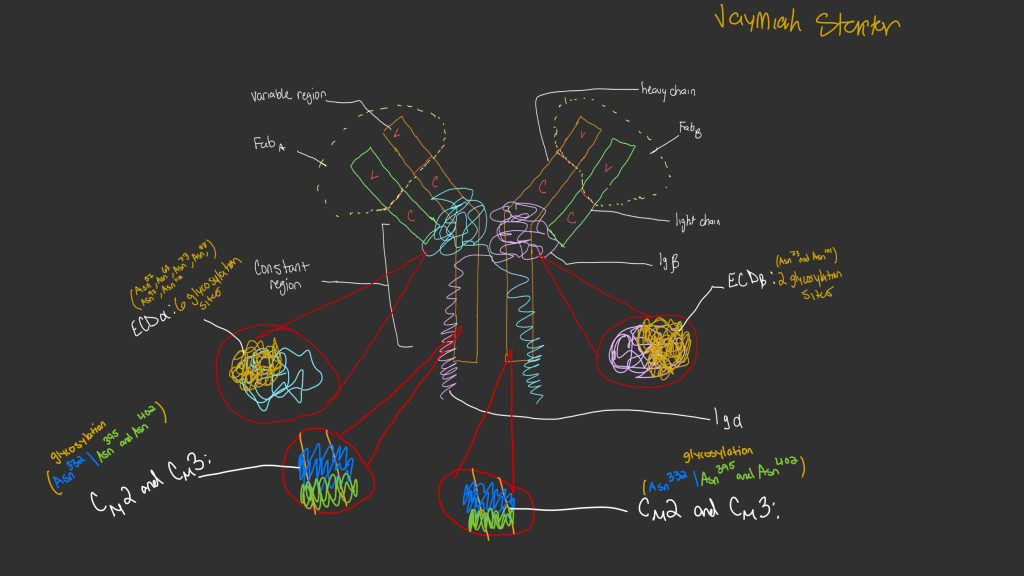 Jaymiah Starter
variable region
heavy chain
Fab A
Fab B
V
V
V
V
C
C
C
C
light chain
Ig β
Constant
region
ECDα: 6 glycosylation
sites
(Asn 73 and Asn 101)
ECDB: 2 glycosylation
sites
Igα
glycosylation
(Asn 332 | Asn 395 and Asn 402)
CM2 and CM3:
glycosylation
(Asn 332 | Asn 395 and Asn 402)
CM2 and CM3: